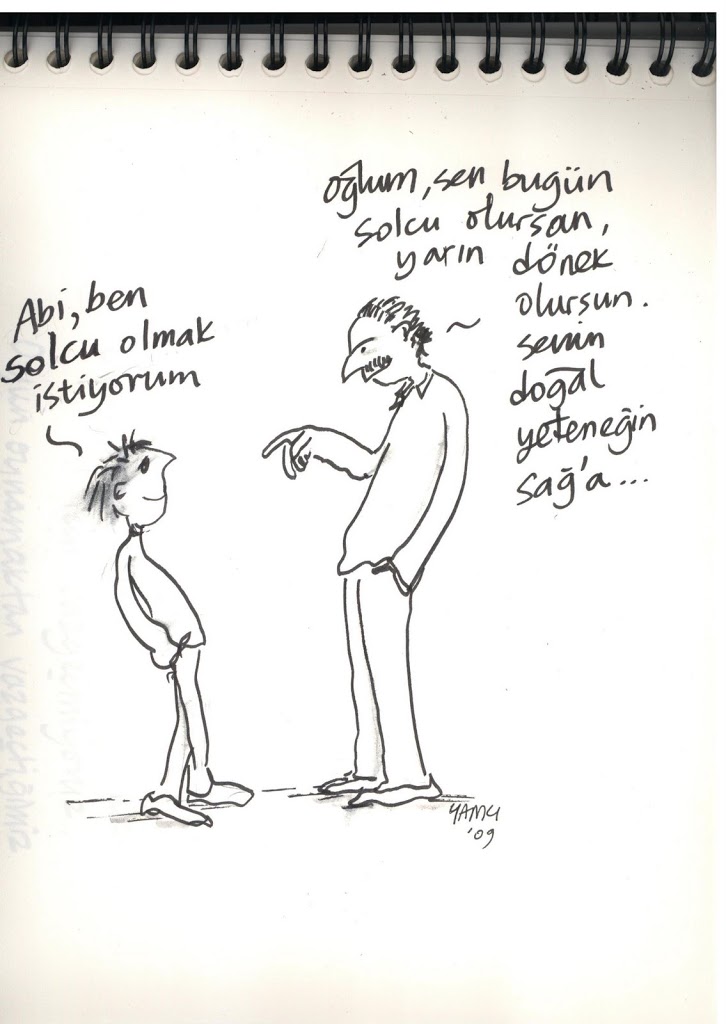 Abi, ben
solcu olmak
istiyorum
oğlum, sen bugün
solcu olursan,
yarın dönek
olursun.
senin
doğal
yeteneğin
sağ'a...
YAMU
'09